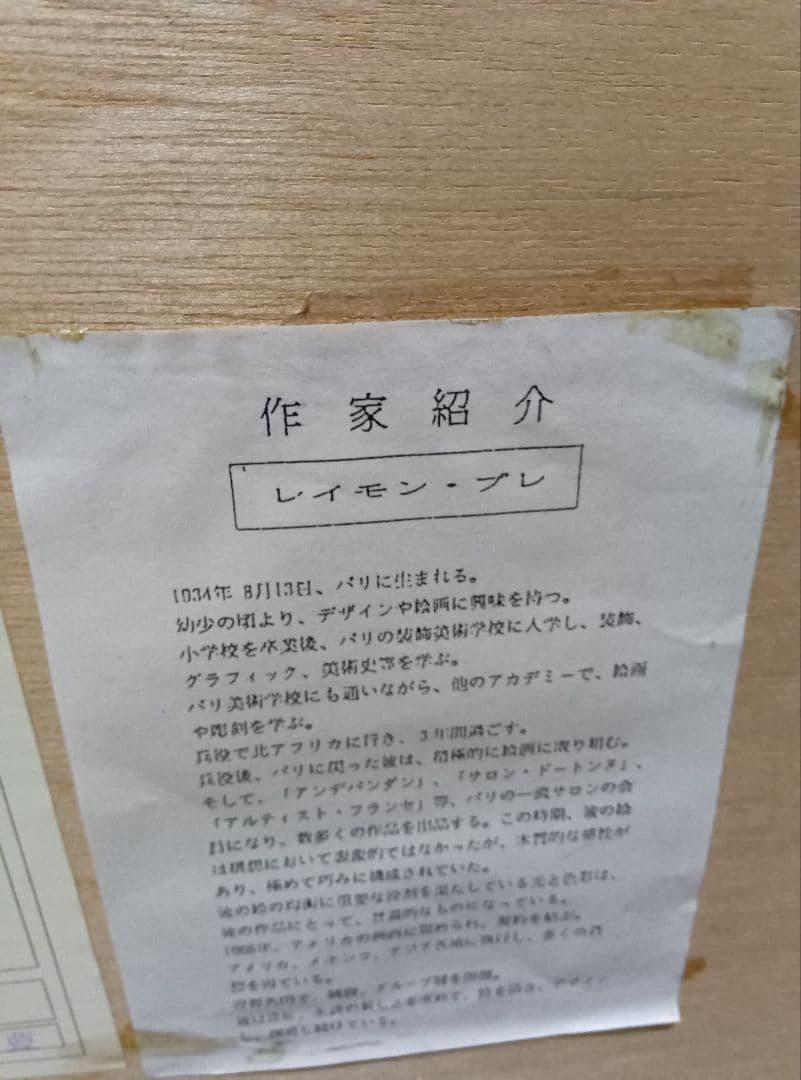 作家紹介
レイモン・プレ
1934年 8月13日、パリに生まれる。
幼少の頃より、デザインや絵画に興味を持つ。
小学校を卒業後、パリの装飾美術学校に入学し、装飾、
グラフィック、美術史等を学ぶ。
パリ美術学校にも通いながら、他のアカデミーで、絵画
や彫刻を学ぶ。
兵役で北アフリカに行き、3年間過ごす。
兵役後、パリに戻った彼は、積極的に絵画に取り組む。
そして、「アンデパンダン」、「サロン・ドートンヌ」、
「アルティスト・フランセ」等、パリの一流サロンの会
員になり、数多くの作品を出品する。この時期、彼の絵
は構想において現象的ではなかったが、本質的な感性が
あり、極めて巧みに構成されていた。
彼の絵の均衡に重要な役割を果たしている光と色彩は、
彼の作品にとって、普遍的なものになっている。
アメリカの画商に認められ、契約を結ぶ。
アメリカ、メキシコ、アジア各地に旅行し、多くの
想を得ている。
個展、グループ展を開催。
続けている。